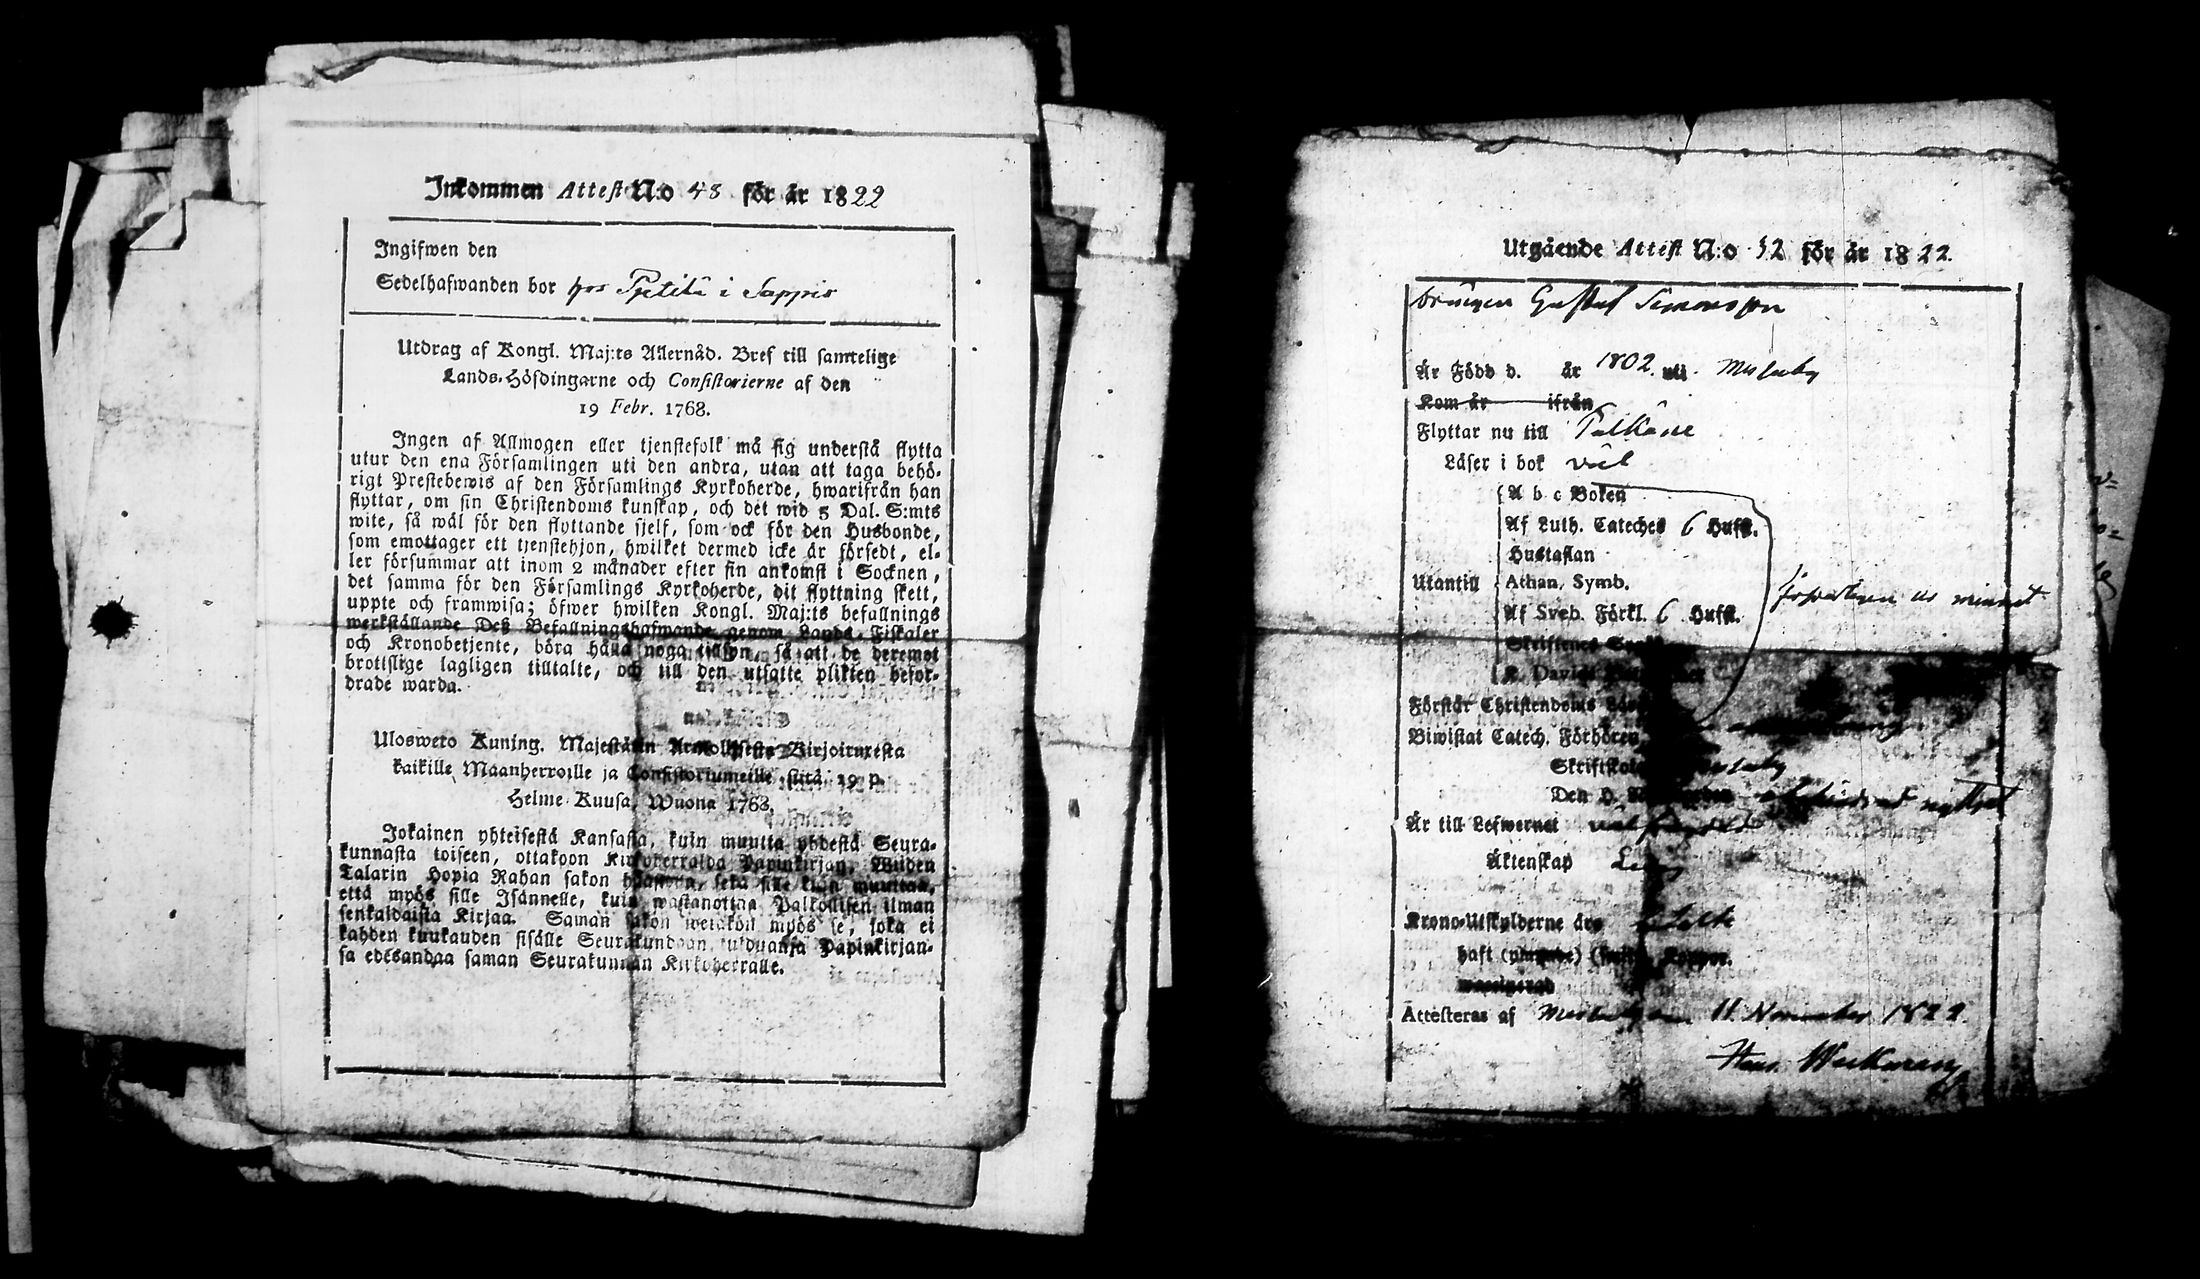 Inkommen Attest N:o 48 för år 1822
Ingifwen den
Sedelhafwanden bor hos i Sappis
Utdrag af Kongl. Maj:ts Allernåd. Bref till samtelige
Lands-Höfdingarne och Consistorierne af den
19 Febr. 1768.
Ingen af Allmogen eller tjenstefolk må sig understå flytta
utur den ena Församlingen uti den andra, utan att taga behö-
rigt Prestebewis af den Församlings Kyrkoherde, hwarifrån han
flyttar, om sin Christendoms kunskap, och det wid 5 Dal. S:mts
wite, så wäl för den flyttande sjelf, som ock för den Husbonde,
som emottager ett tjenstehjon, hwilket dermed icke är försedt, el-
ler försummar att inom 2 månader efter sin ankomst i Socknen,
det samma för den Församlings Kyrkoherde, dit flyttning skett,
uppte och framwisa; öfwer hwilken Kongl. Maj:ts befallnings
werkställande Deß Befallningshafwande genom Lands-Fiskaler
och Kronobetjente, böra hålla noga tillsyn, så att de deremot
brottslige lagligen tilltalte, och till den utsatte plikten befor-
drade warda.
Uloswero Kuning. Majestätin Armollisesta Kirjoituxesta
kaikille Maanherroille ja Consistoriumeille, siitä 19 p.
Helme Kuusa, Wuona 1768.
Jokainen yhteisestä Kansasta, kuin muutta yhdestä Seura-
kunnasta toiseen, ottakoon Kirkoherralda Papinkirjan, Wiiden
Talarin Hopia Rahan sakon haastolla, sekä sille kuin muuttaa,
että myös sille Isännelle, kuin wastanottaa Palkollisen ilman
senkaldaista Kirjaa. Saman sakon wetäkön myös se, joka ei
kahden kuukauden sisälle Seurakundaan tulduansa Papinkirjan-
sa edesandaa saman Seurakunnan Kirkoherralle.
Utgående Attest N:o 52 för år 1822.
drängen Gustaf Simonsson
Är Född d. år 1802 uti Messuby
Kom år ifrån
Flyttar nu till Pälkäne
Läser i bok väl
A b c Boken
Af Luth. Cateches 6 Hufst.
Hustaflan
Utantill Athan. Symb.
försvarligen ur minnet
Af Sveb. Förkl. 6 Hufst.
Skriftenes
K. Davids
Förstår Christendoms
Biwistat Catech. Förhören
Skriftskol Messuby
Den H. nyttjat
Är till Lefwernet
Äktenskap Ledig
Krono-Utskylderne äro
haft Koppor.
Attesteras af Messuby den 11 November 1822.